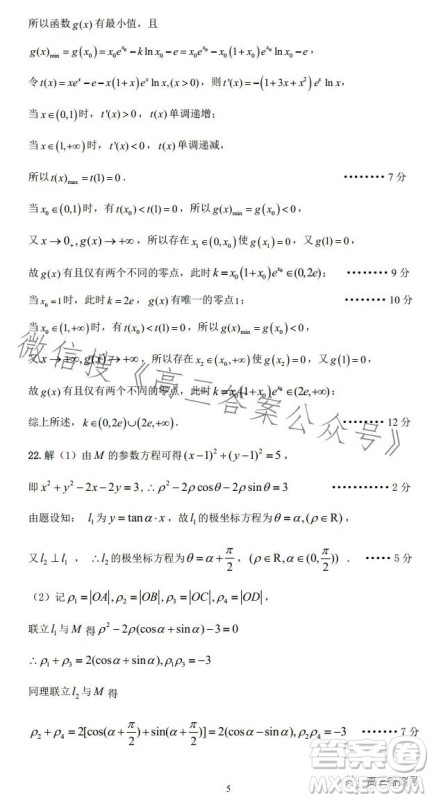 所以函数g(x)有最小值，且
g(x)min = g(x₀) = x₀e^{x₀} − k ln x₀ − e = x₀e^{x₀} − x₀(1+x₀)e^{x₀} ln x₀ − e，
令t(x) = xe^x − e − x(1+x)e^x ln x,(x>0)，则t'(x) = −(1+3x+x²)e^x ln x，
当x∈(0,1)时，t'(x)>0，t(x)单调递增；
当x∈(1,+∞)时，t'(x)<0，t(x)单调递减，
所以t(x)max = t(1) = 0． ········7分
当x₀∈(0,1)时，有t(x₀)<t(1)=0，所以g(x)min = g(x₀)<0，
又x→0₊,g(x)→+∞，所以存在x₁∈(0,x₀)使g(x₁)=0，又g(1)=0，
故g(x)有且仅有两个不同的零点，此时k=x₀(1+x₀)e^{x₀}∈(0,2e)； ········9分
当x₀=1时，此时k=2e，g(x)有唯一的零点1； ········10分
当x₀∈(1,+∞)时，有t(x₀)<t(1)=0，所以g(x)min = g(x₀)<0，
又x→+∞,g(x)→+∞，所以存在x₂∈(x₀,+∞)使g(x₂)=0，又g(1)=0，
故g(x)有且仅有两个不同的零点，此时k=x₀(1+x₀)e^{x₀}∈(2e,+∞)；
综上所述，k∈(0,2e)∪(2e,+∞)． ········12分
22.解（1）由M的参数方程可得(x−1)²+(y−1)²=5，
即x²+y²−2x−2y=3,∴ρ²−2ρcosθ−2ρsinθ=3 ···········2分
由题设知：l₁为y=tanα·x，故l₁的极坐标方程为θ=α,(ρ∈R)，
又l₂⊥l₁，∴l₂的极坐标方程为θ=α+π/2，(ρ∈R,α∈(0,π/2))． ·····5分
（2）记ρ₁=|OA|,ρ₂=|OB|,ρ₃=|OC|,ρ₄=|OD|，
联立l₁与M得ρ²−2ρ(cosα+sinα)−3=0
∴ρ₁+ρ₃=2(cosα+sinα),ρ₁ρ₃=−3
同理联立l₂与M得
ρ₂+ρ₄=2[cos(α+π/2)+sin(α+π/2)]=2(cosα−sinα),ρ₂ρ₄=−3 ·······7分
5
微信搜《高三答案公众号》